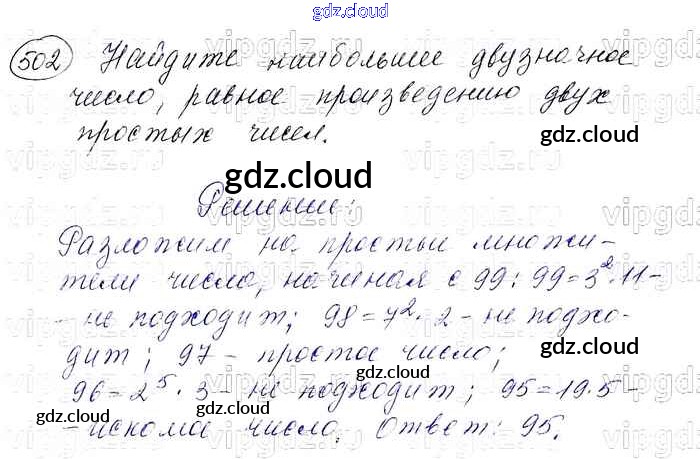 gdz.cloud
502 Найдите наибольшее двузначное
число, равное произведению двух
простых чисел.
gdz.cloud
gdz.cloud
Решение:
Разложим на простые множи-
тели число, начиная с 99: 99=3²·11-
- не подходит; 98=7²·2 - не подхо-
дит; 97 - простое число;
gdz.cloud
96=2⁵·3 - не подходит; 95=19·5-
gdz.cloud
gdz.cloud
- искомое число. Ответ: 95.